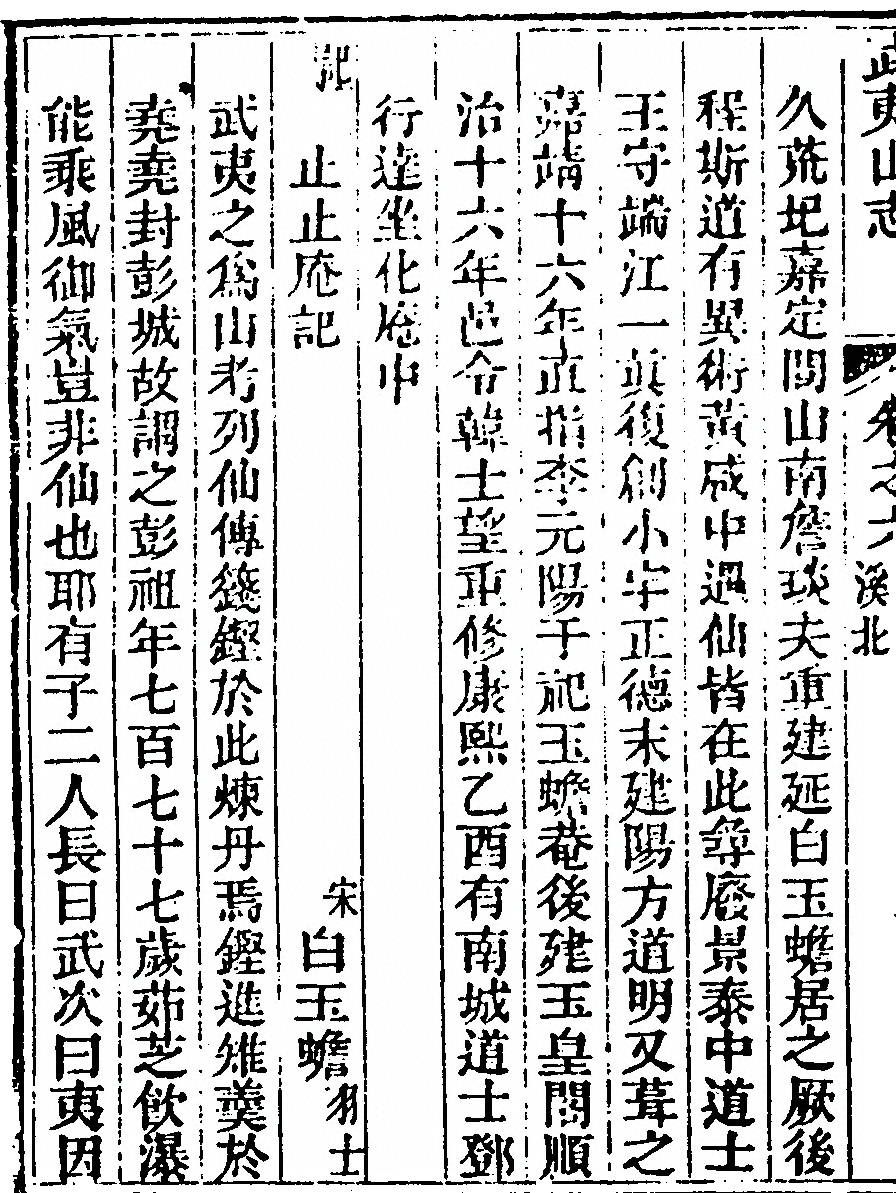 武夷山志 卷之六 溪北
久荒圮嘉定間山南詹琰夫重建延白玉蟾居之厥後
程斯道有異術黃咸中遇仙皆在此尋廢景泰中道士
王守端江一真復創小宇正德末建陽方道明又葺之
嘉靖十六年直指李元陽于祀玉蟾菴後建玉皇閣順
治十六年邑令韓士望重修康熙乙酉有南城道士鄧
行達坐化庵中
記
止止庵記 宋白玉蟾羽士
武夷之為山考列仙傳籛鏗於此煉丹焉鏗進雉羹於
堯堯封彭城故謂之彭祖年七百七十七歲茹芝飲瀑
能乘風御氣豈非仙也耶有子二人長曰武次曰夷因